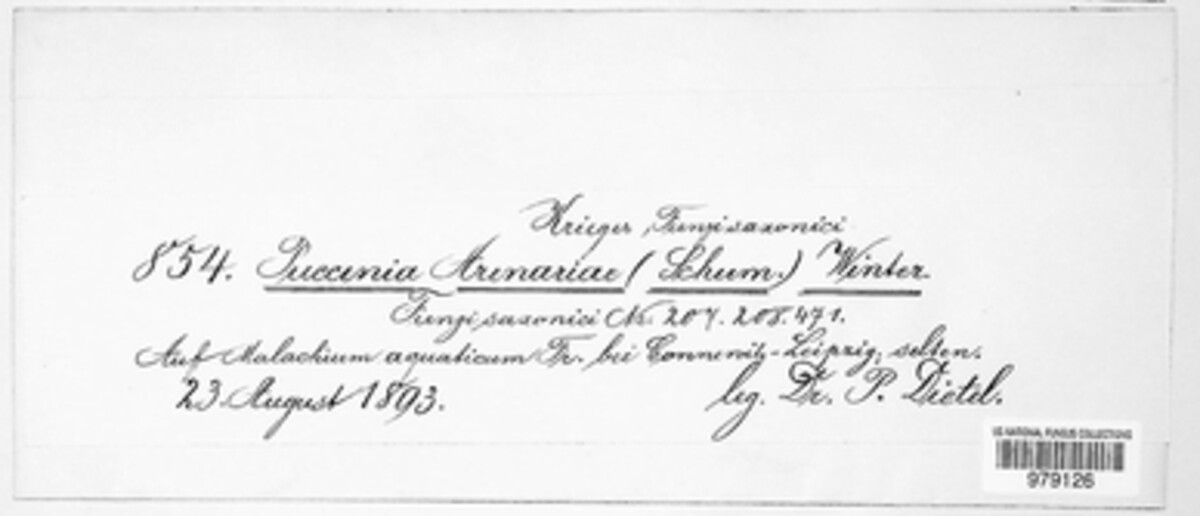 Krieger, Fungi saxonici
854. Puccinia Arenariae (Schum.) Winter.
Fungi saxonici Nr. 207. 208. 471.
Auf Malachium aquaticum Fr. bei Connewitz-Leipzig, selten.
23. August 1893. leg. Dr. P. Dietel.
US NATIONAL FUNGUS COLLECTIONS
979126